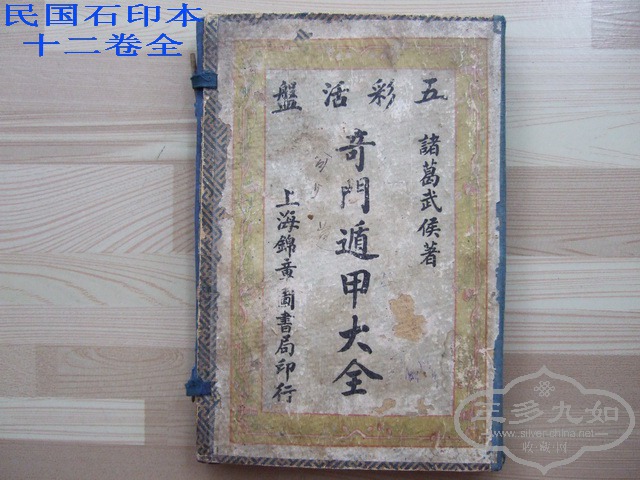 民国石印本
十二卷全
五彩活盤
諸葛武侯著
奇門遁甲大全
上海錦章圖書局印行
年多九如
www.silver-china.net
收·藏·网